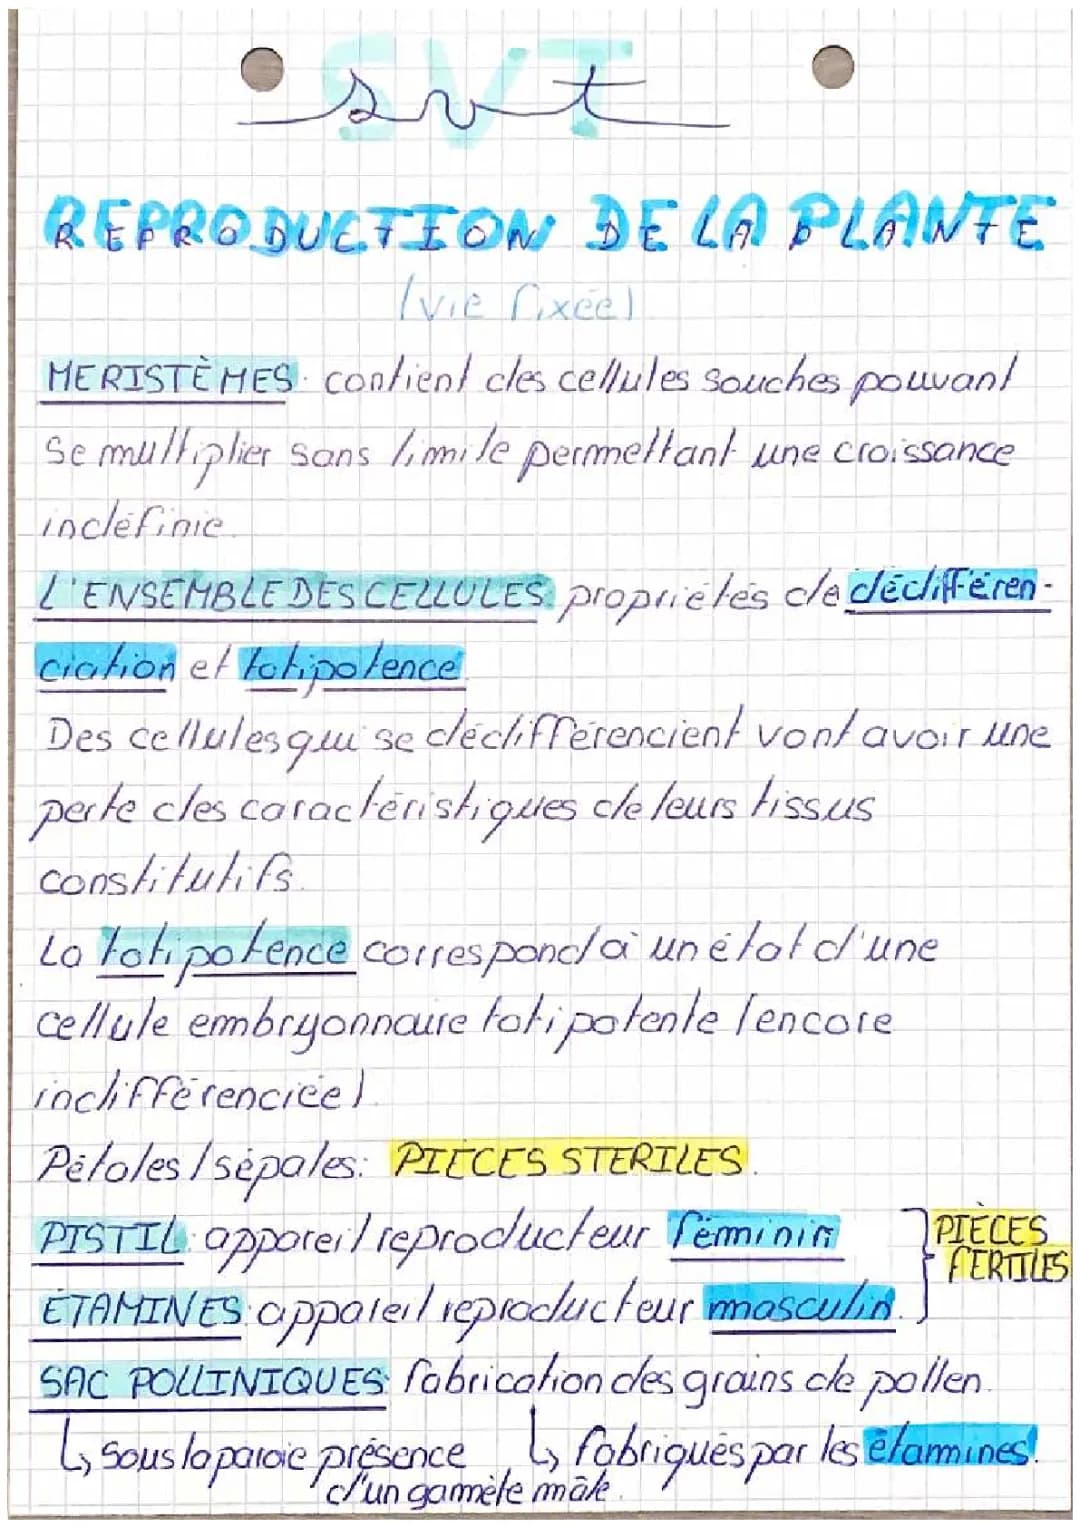 SVT
svt
REPRODUCTION DE LA PLANTE
(vie fixée)
MERISTÈMES: contient des cellules souches pouvant
se multiplier sans limite permettant une croissance
indéfinie.
L'ENSEMBLE DES CELLULES: propriétés de dédifféren-
ciation et totipotence.
Des cellules qui se dédifférencient vont avoir une
perte des caractéristiques de leurs tissus
constitutifs.
La totipotence correspond à un état d'une
cellule embryonnaire totipotente (encore
indifférenciée).
Pétales/sépales: PIECES STERILES.
PISTIL: appareil reproducteur féminin
ÉTAMINES: appareil reproducteur masculin.
PIÈCES
FERTILES
SAC POLLINIQUES: fabrication des grains de pollen.
↳ sous la paroie présence
d'un gamète mâle.
↳ fabriqués par les étamines!